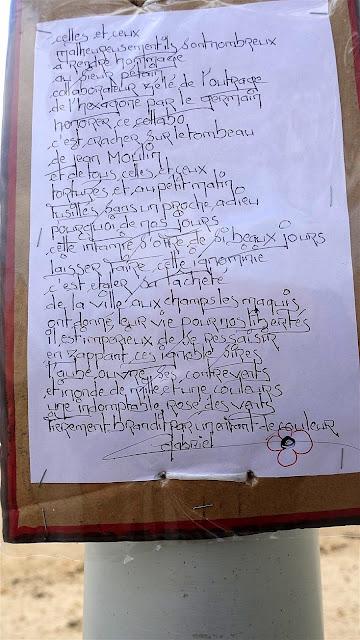 celles et ceux
malheureusement ils sont nombreux
à rendre hommage
au sieur pétain
collaborateur zélé de l'outrage
de l'hexagone par le germain
honorer ce collabo
c'est cracher sur le tombeau
de jean Moulin
et de tous celles et ceux
torturés et au petit matin
fusillés sans un proche adieu
pourquoi de nos jours
cette infamie s'offre de si beaux jours
laisser faire cette ignominie
c'est étaler sa lacheté
de la ville aux champs les maquis
ont donné leur vie pour nos libertés
il est impérieux de se ressaisir
en zappant ces ignobles sires
l'aube ouvre ses contrevents
et inonde de mille et une couleurs
une indomptable rose des vents
fièrement brandit par un enfant de couleur
Gabriel